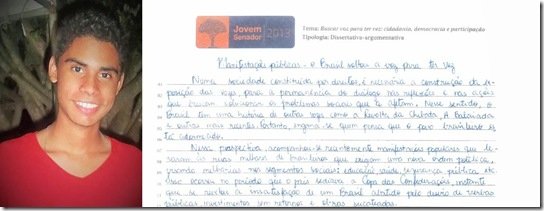 Jovem
Senador
2013
Tema: Buscar voz para ter vez: cidadania, democracia e participação
Tipologia: Dissertativo-argumentativa
Manifestações públicas - o Brasil soltou a voz para ter vez
Numa sociedade constituída por direitos, é necessária a construção da
posição das vozes, para a permanência do diálogo nas reflexões e nas ações
que buscam solucionar os problemas sociais que a afetam. Nesse sentido, o
Brasil tem uma história de outras vozes como a Revolta da Chibata, A Balaiada
e outras mais recentes. Portanto, engana-se quem pensa que o povo brasileiro se
Nessa perspectiva, acompanhou-se recentemente manifestações populares que le-
varam às ruas milhares de brasileiros que exigiam uma nova ordem política,
quando melhorias nos segmentos sociais: educação, saúde, segurança pública etc.
Isso ocorreu no período que o país sediava a Copa das Confederações, instante
que se revelou a insatisfação de um Brasil afetado pelo desvio de verbas
públicas, investimentos sem retornos e obras